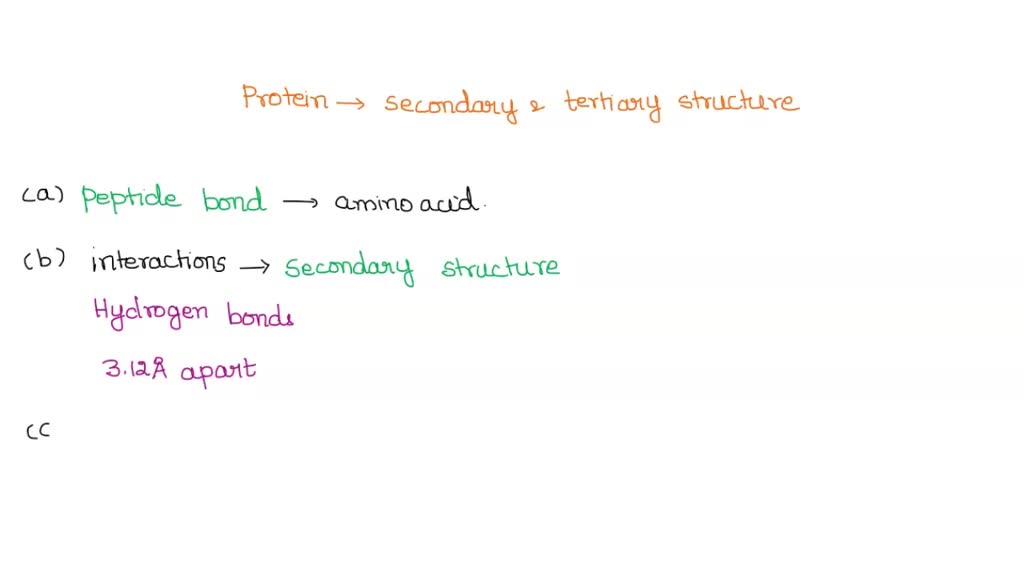 Protein → secondary & tertiary structure
(a) peptide bond → amino acid.
(b) interactions → secondary structure
Hydrogen bonds
3.12Å apart
(c